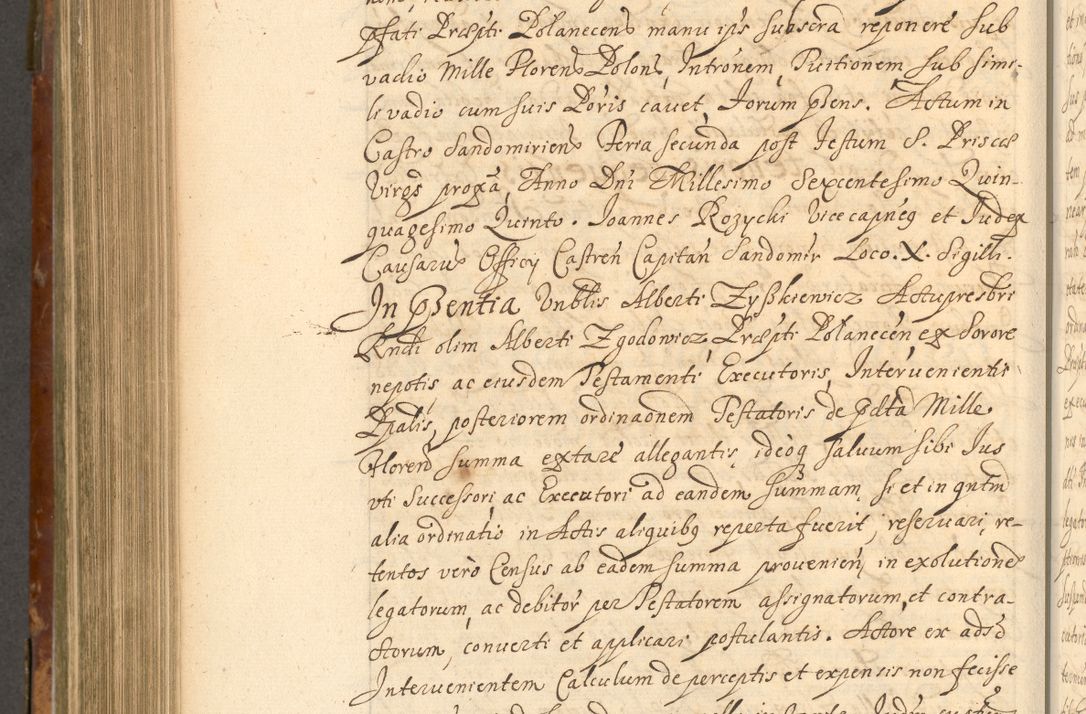 pfati Præpti Polanecens manu ips subscra reponere sub
vadio Mille Florens Polons, Intronem, Puritionem sub simi-
li vadio cum suis Poris cavet, Forum pens. Actum in
Castro Sandomiriens Feria secunda post Festum S. Priscæ
Virgs proxa, Anno Dni Millesimo Sexcentesimo Quin-
quagesimo Quinto. Joannes Rozycki Vicecapneq et Judex
Causarus Officij Castren Capitan Sandomir Loco. X. Sigilli.
In pentia Vnblis Alberti Zyszkiewicz Actu presbri
Rndi olim Alberti Zgodowicz Præpti Polanecen ex Sorore
nepotis ac eiusdem Testamenti Executoris, Intervenientis
Pralis, posteriorem ordinaonem Testatoris de pdta Mille
Floren summa extare allegantis, ideoq salvum sibi Jus
vti Successori ac Executori ad eandem summam, si et in qntm
alia ordinatio in Actis aliquibq reperta fuerit, reservari, re-
tentos vero Census ab eadem summa provenien, in exolutione
legatorum, ac debitor per Testatorem assignatorum, et contra-
ctorum, converti et applicari postulantis. Actore ex adsd
Intervenientem Calculum de perceptis et expensis non fecisse